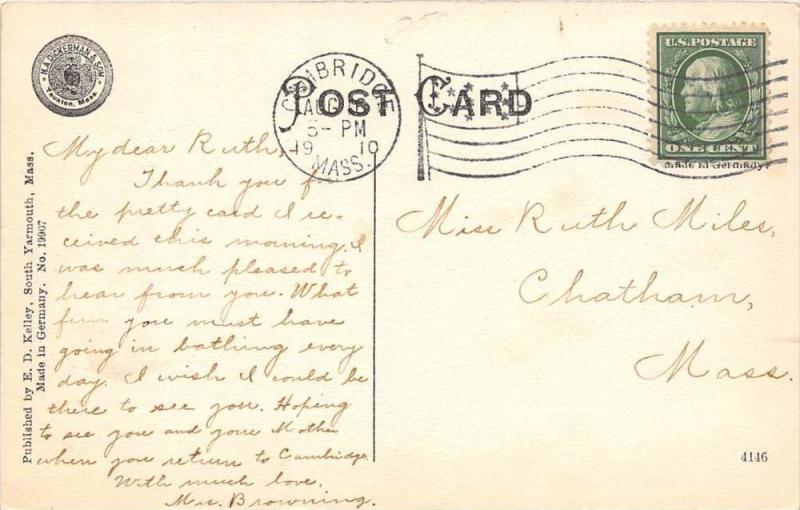 H.A. DICKERMAN & SON
Taunton, Mass.
POST CARD
CAMBRIDGE
AUG
5- PM
19 10
MASS.
U.S. POSTAGE
ONE CENT
Made in Germany.
My dear Ruth,
Thank you f
the pretty card I re-
ceived this morning. I
was much pleased to
hear from you. What
fun you must have
going in bathing every
day. I wish I could be
there to see you. Hoping
to see you and your Mother
when you return to Cambridge.
With much love.
Mrs. Browning.
Miss Ruth Miles,
Chatham,
Mass.
Published by E. D. Kelley, South Yarmouth, Mass.
Made in Germany. No. 19907
4146